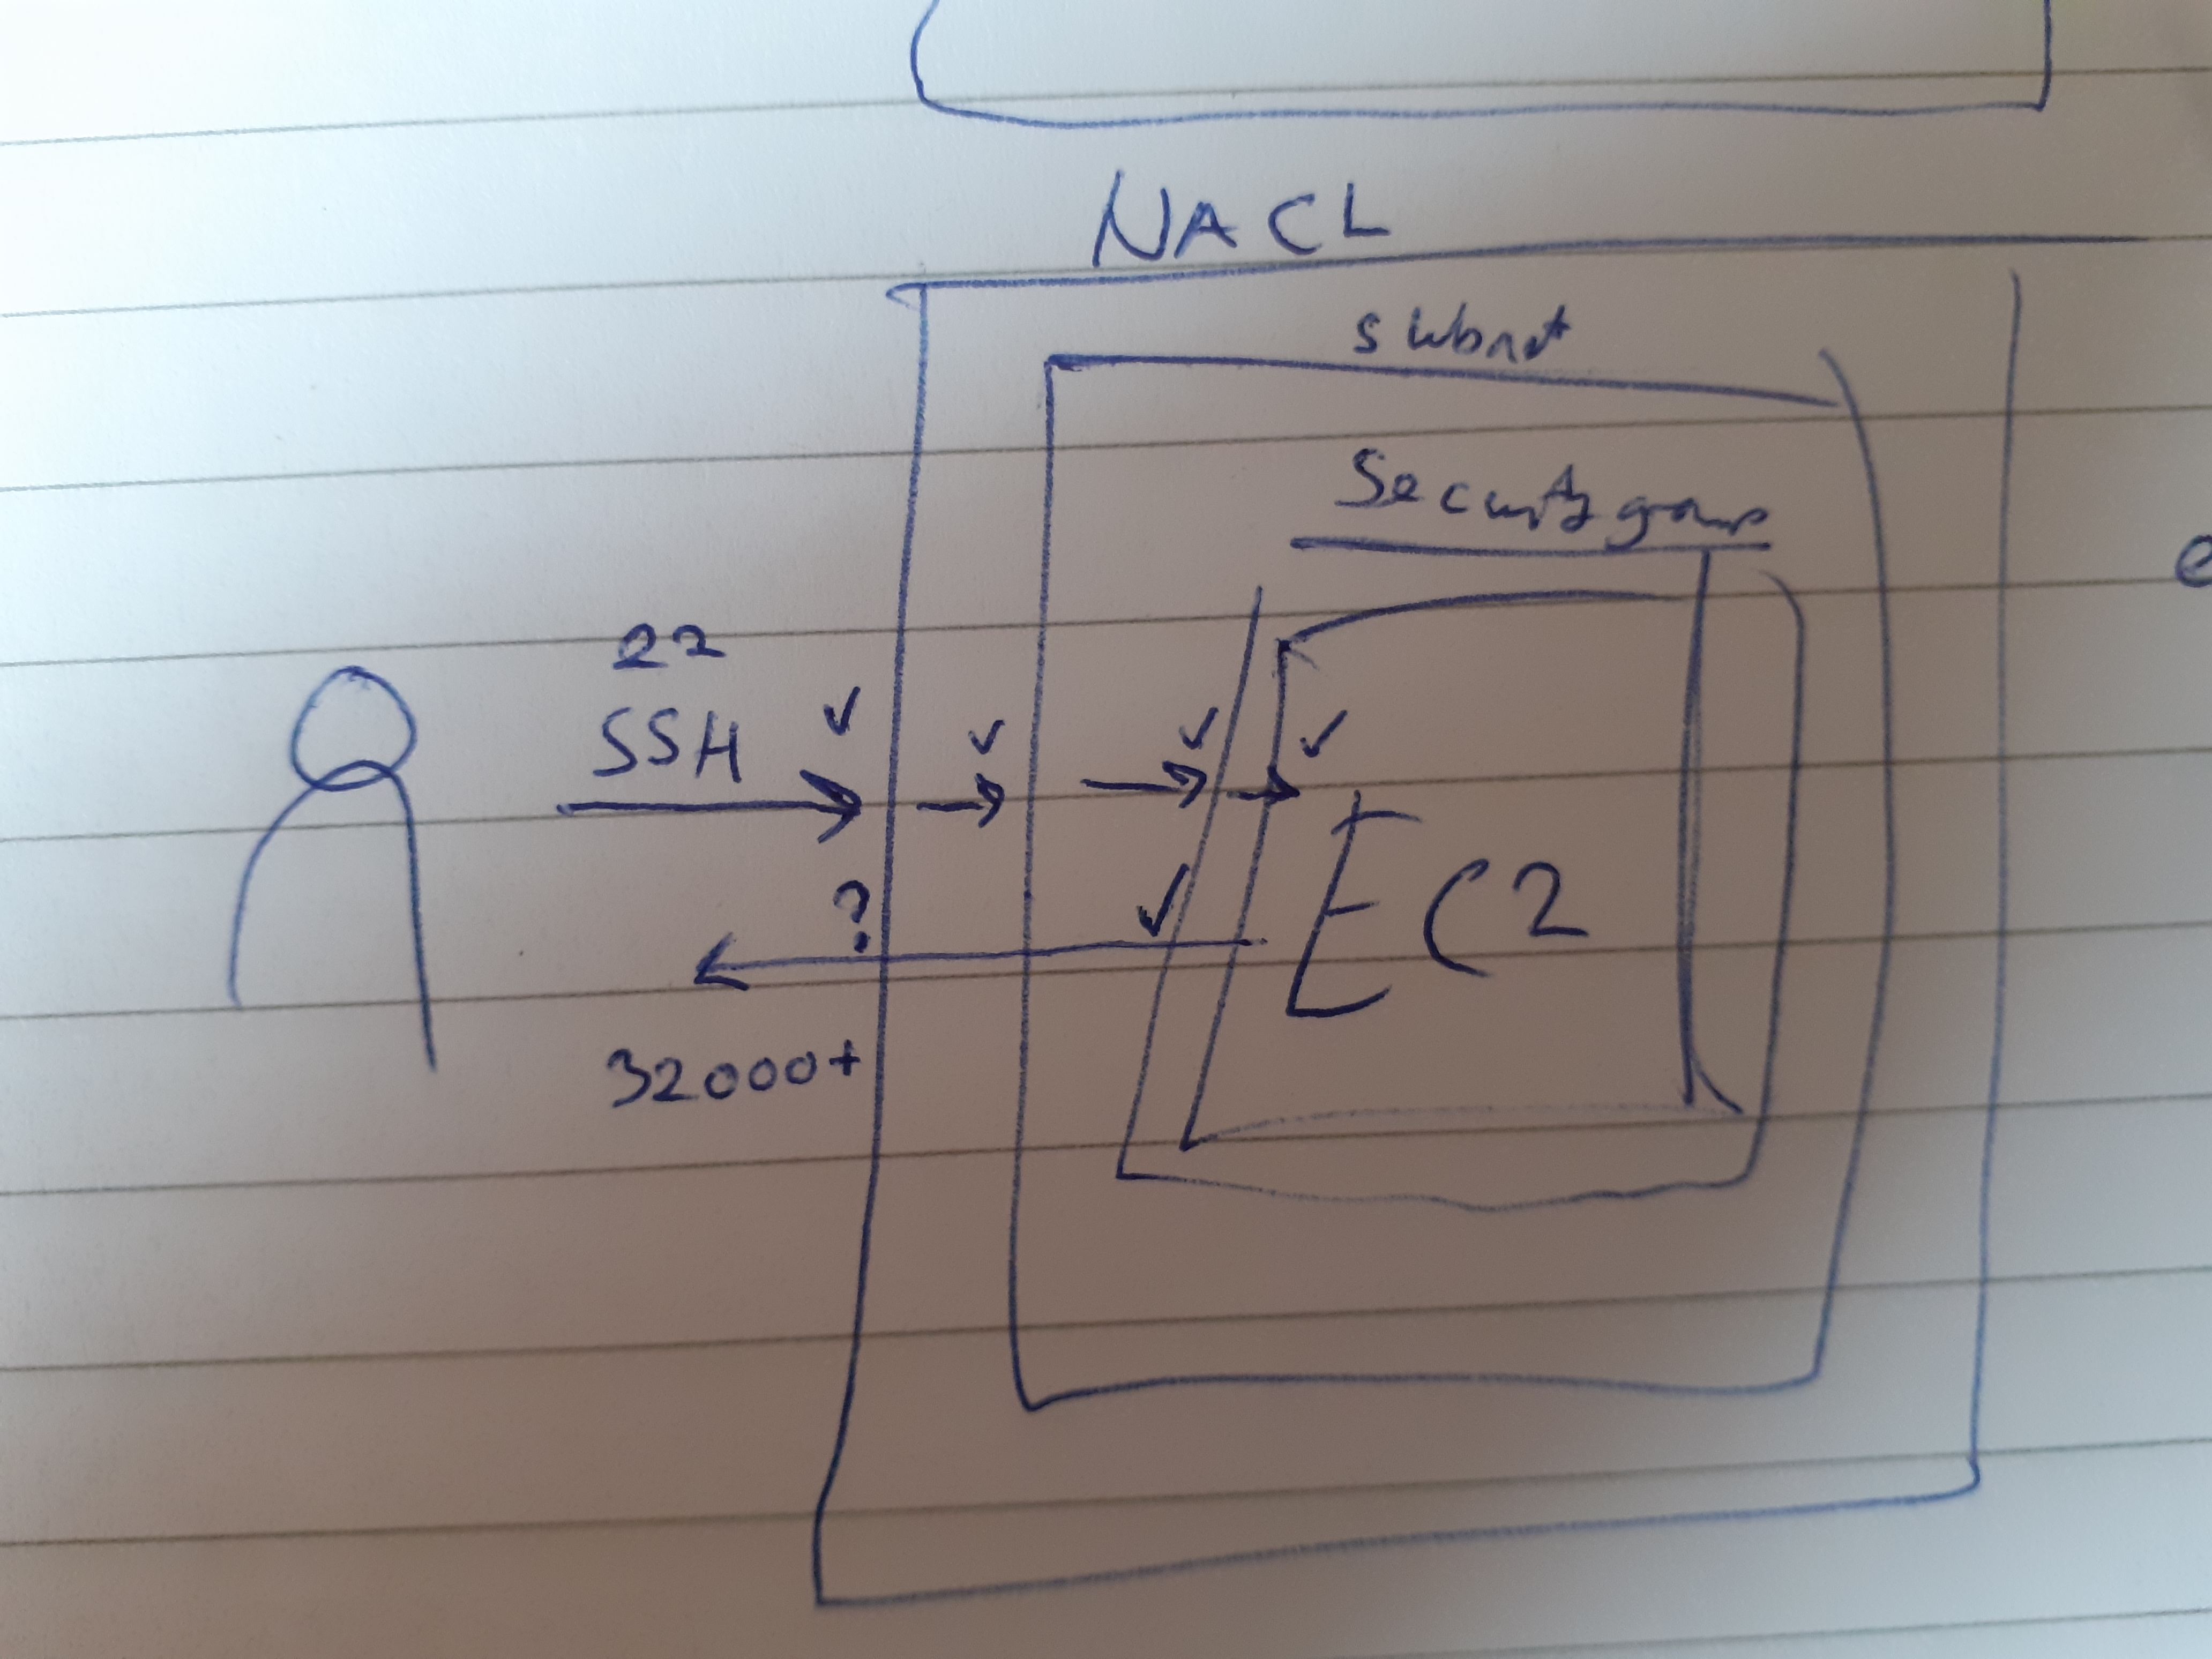 NACL
subnet
Security group
22
SSH
?
EC2
32000+
e